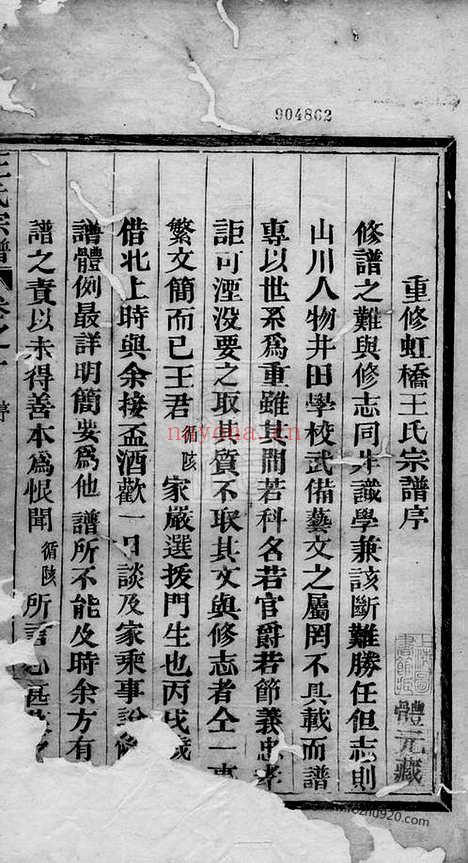 904862
重修虹橋王氏宗譜序
修譜之難與修志同非識學兼該斷難勝任但志則
山川人物井田學校武備藝文之屬罔不具載而譜
專以世系為重雖其間若科名若官爵若節義忠孝
詎可湮没要之取其質不取其文與修志者仝一事
繁文簡而已王君循陔家嚴選拔門生也丙戌歲
借北上時與余接盃酒歡一日談及家乘事說修
譜體例最詳明簡要為他譜所不能及時余方有
譜之責以未得善本為恨聞循陔所言
王氏宗譜
卷之一
序
體元藏
nayoua.com
mfozhu920.com